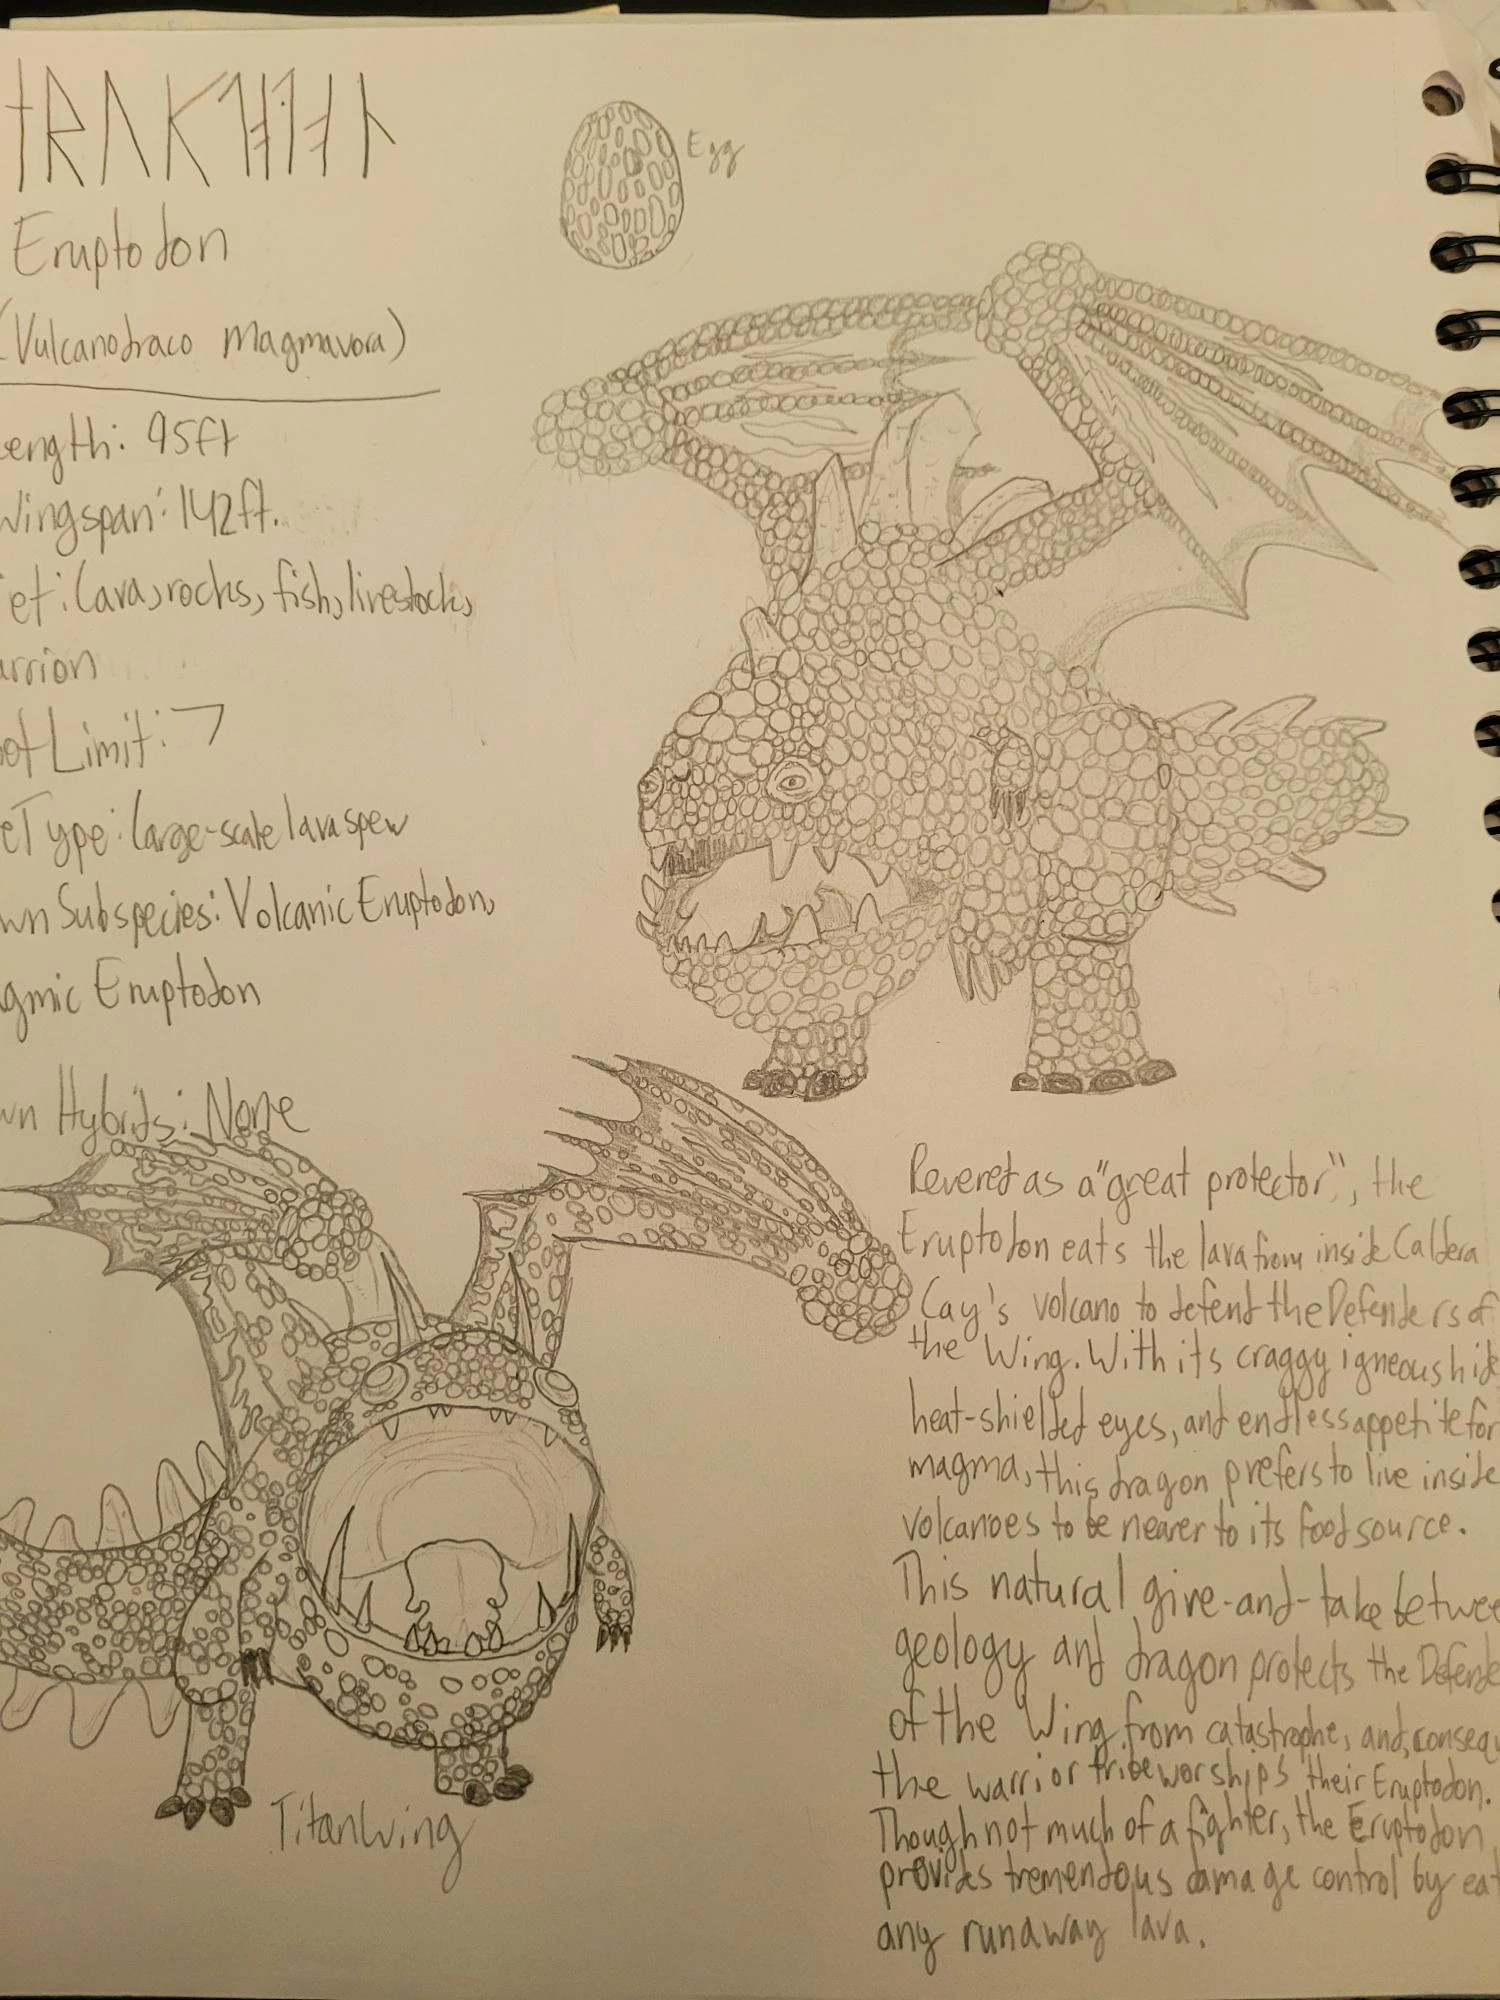 Eruptodon
(Vulcanodraco Magmavora)
ength: 95ft
Wingspan: 142ft.
iet: Lava, rocks, fish, livestock,
arrion
ot Limit: 7
eType: Large-scale lava spew
wn Subspecies: Volcanic Eruptodon,
gmic Eruptodon
wn Hybrids: None
Egg
Revered as a "great protector", the
Eruptodon eats the lava from inside Caldera
Cay's volcano to defend the Defenders of
the Wing. With its craggy igneous hid
heat-shielded eyes, and endless appetite for
magma, this dragon prefers to live inside
volcanoes to be nearer to its food source.
This natural give-and-take betwee
geology and dragon protects the Defende
of the Wing from catastrophe, and, consequ
the warrior tribe worships their Eruptodon.
Though not much of a fighter, the Eruptodon
provides tremendous damage control by eat
any runaway lava.
Titan Wing